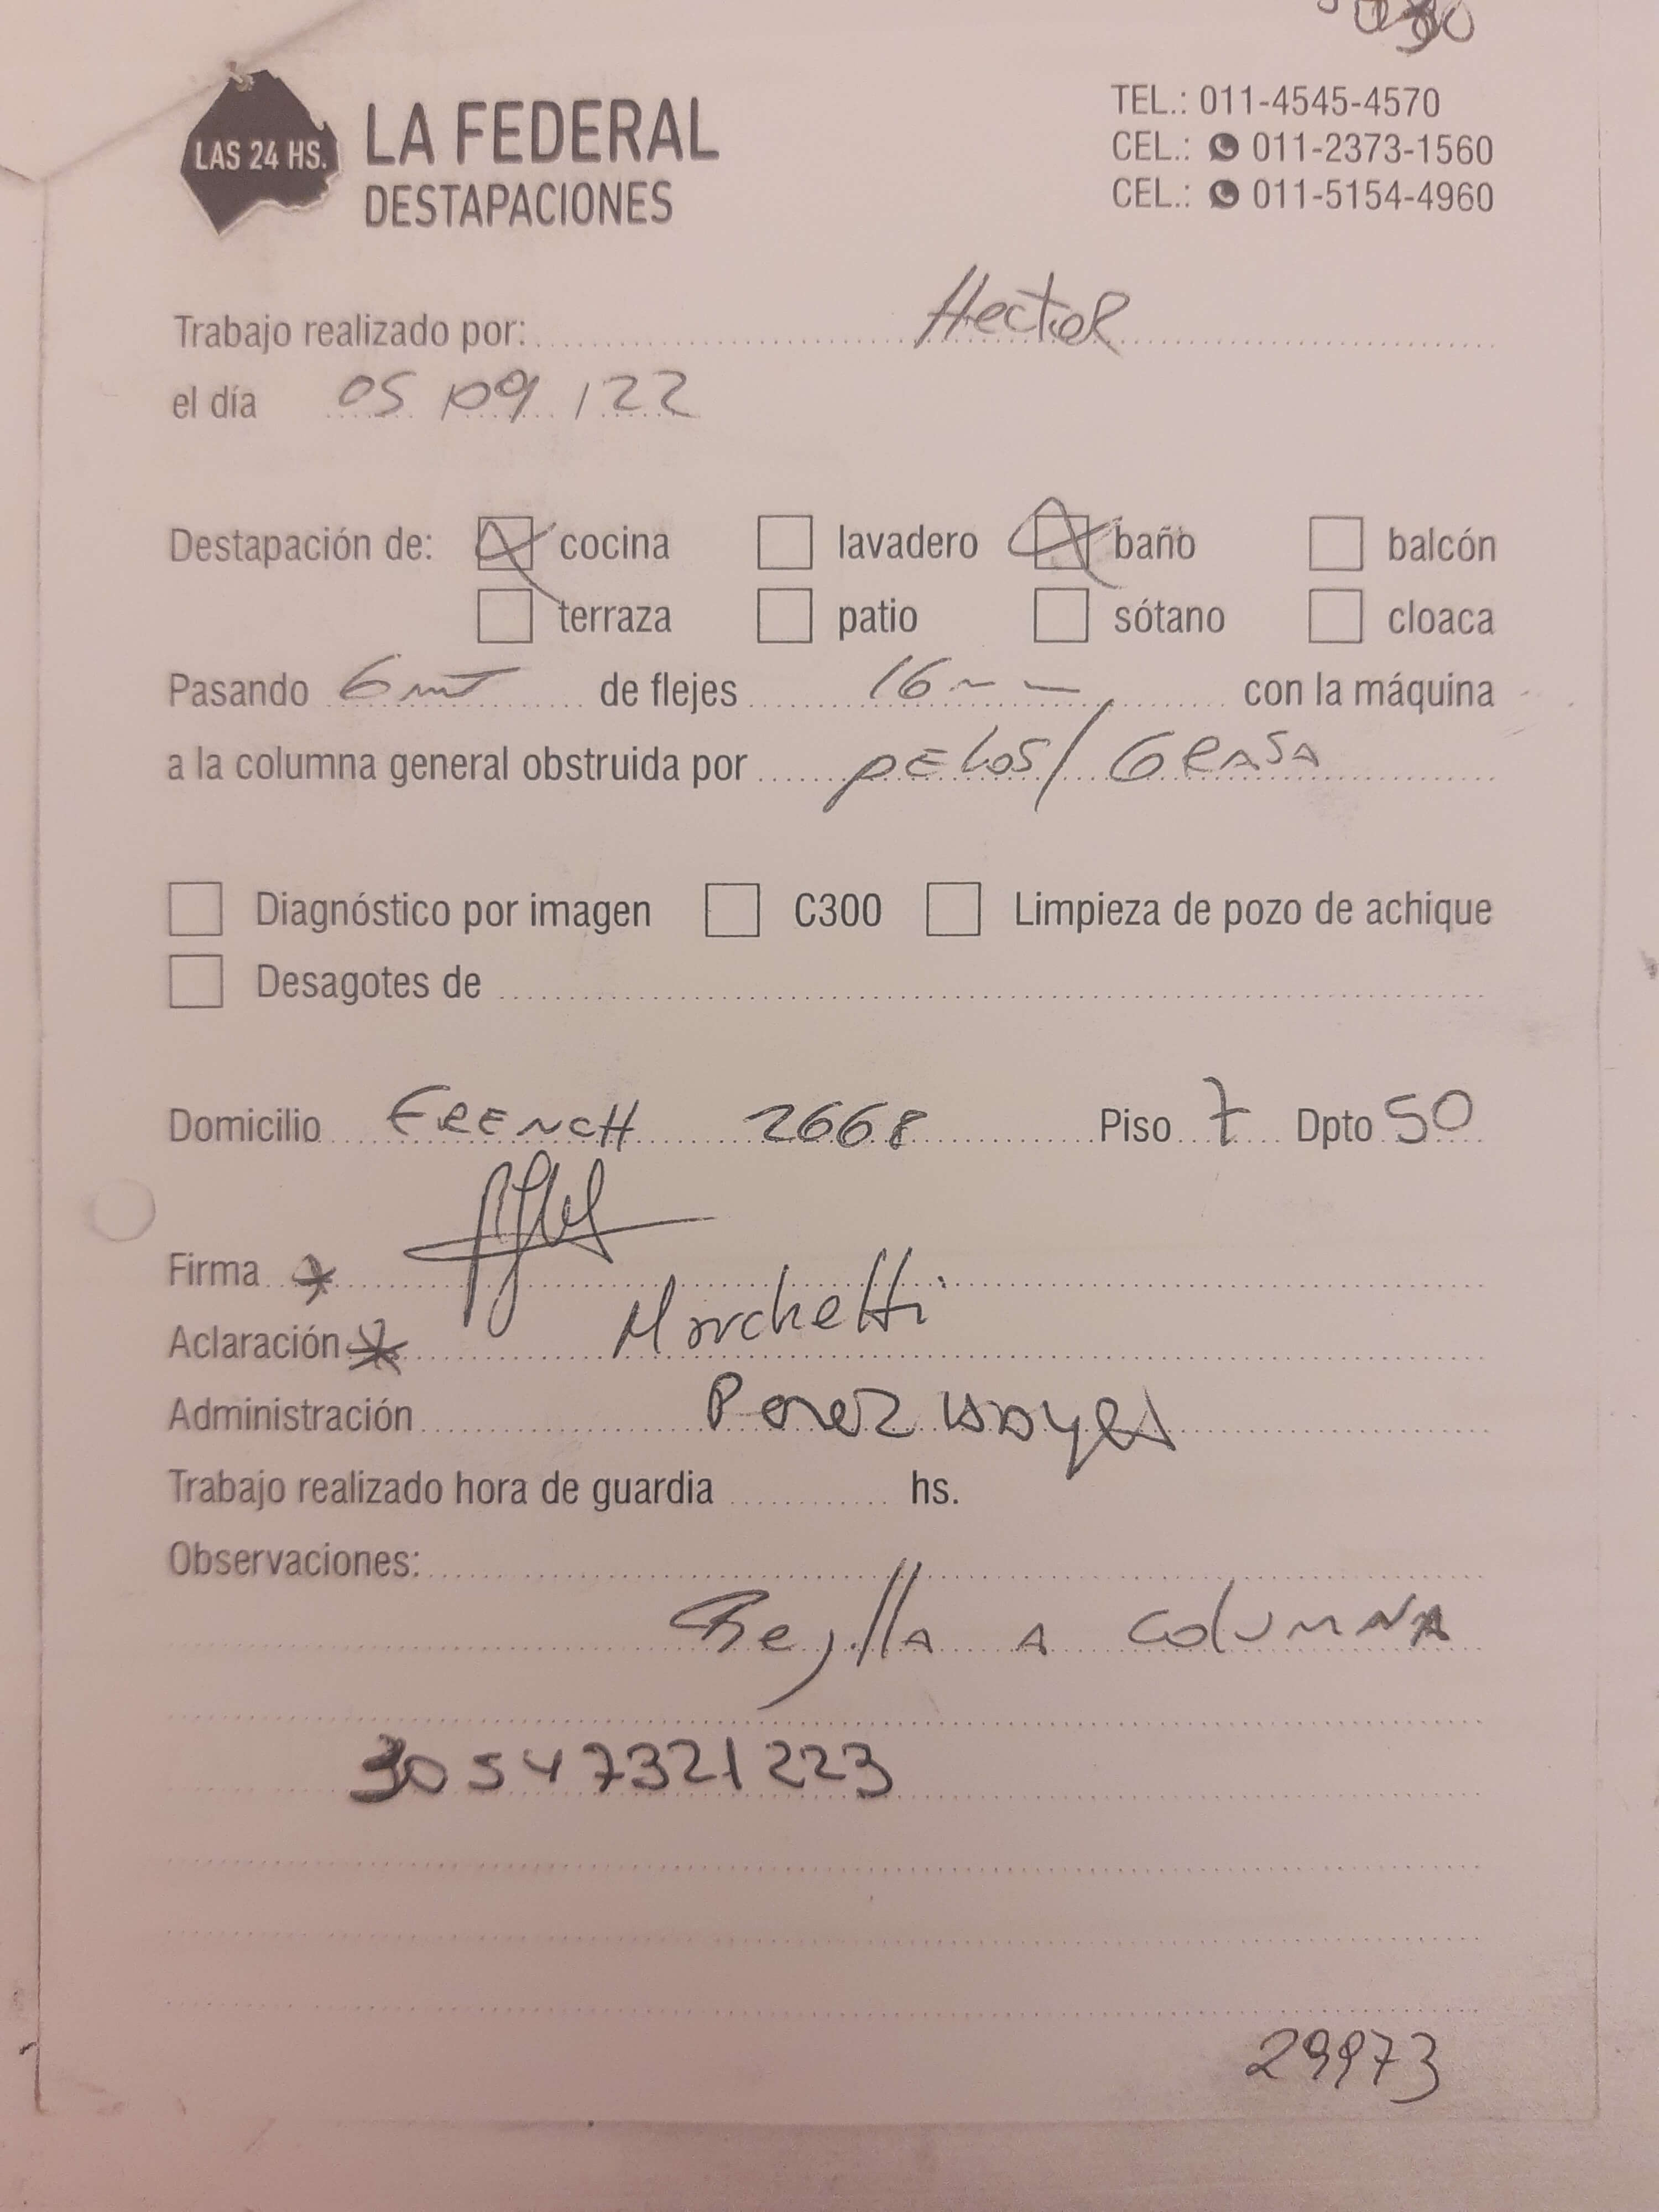 LAS 24 HS.
LA FEDERAL
DESTAPACIONES
TEL.: 011-4545-4570
CEL.: 011-2373-1560
CEL.: 011-5154-4960
Trabajo realizado por: Hector
el día 05 / 09 / 22
Destapación de: cocina lavadero baño balcón
terraza patio sótano cloaca
Pasando 6 mt de flejes 16 con la máquina
a la columna general obstruida por PELOS / GRASA
Diagnóstico por imagen C300 Limpieza de pozo de achique
Desagotes de
Domicilio FRENCH 2668 Piso 7 Dpto 50
Firma
Aclaración Marchetti
Administración Perez
Trabajo realizado hora de guardia hs.
Observaciones:
Rejilla A columNA
30547321223
29973